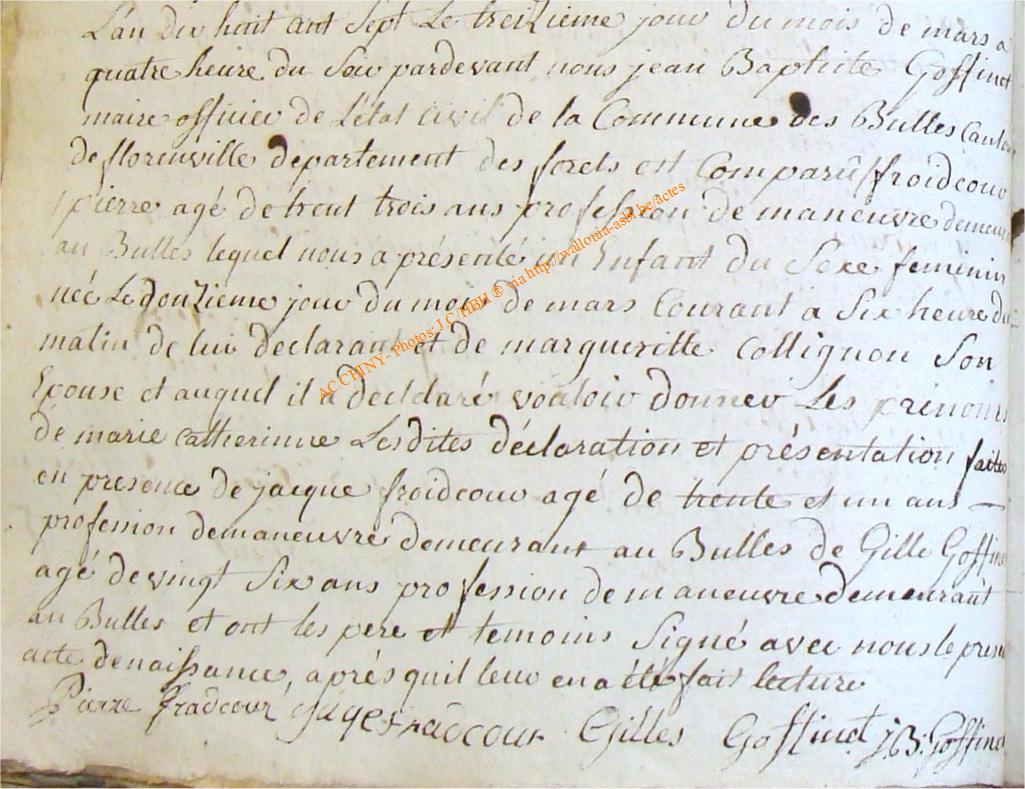 L'an dix huit ant sept Le treizieme jour du mois de mars a
quatre heure du Soir pardevant nous jean Baptiste Goffinet
maire officier de L'état civil de la Commune des Bulles Canton
de florenville departement des forets est Comparû froidcour
pierre agé de trent trois ans profession de manœuvre demeur
au Bulles lequel nous a présenté un Enfant du Sexe feminin
née Le douzieme jour du mois de mars Courant a Six heure du
matin de lui declarant et de margueritte Collignon Son
Epouse et auquel il a decldaré vouloir donner Les prénoms
de marie catherinne Lesdites déclaration et présentation faites
en presence de jacque froidcour agé de trente et un ans —
profession demaneuvre demeurant au Bulles de Gille Goffine
agé de vingt Six ans profession de maneuvre demeurant
au Bulles et ont les pere et temoins Signé avec nous le presen
acte denaissance, aprés quil leur en a été fait lecture
Pierre fradcour jaqe fradcour Gilles Goffinet. j.B. Goffinet
AC CHINY - Photos: J.C/HBH ® via http://wallonia-asbl.be/actes